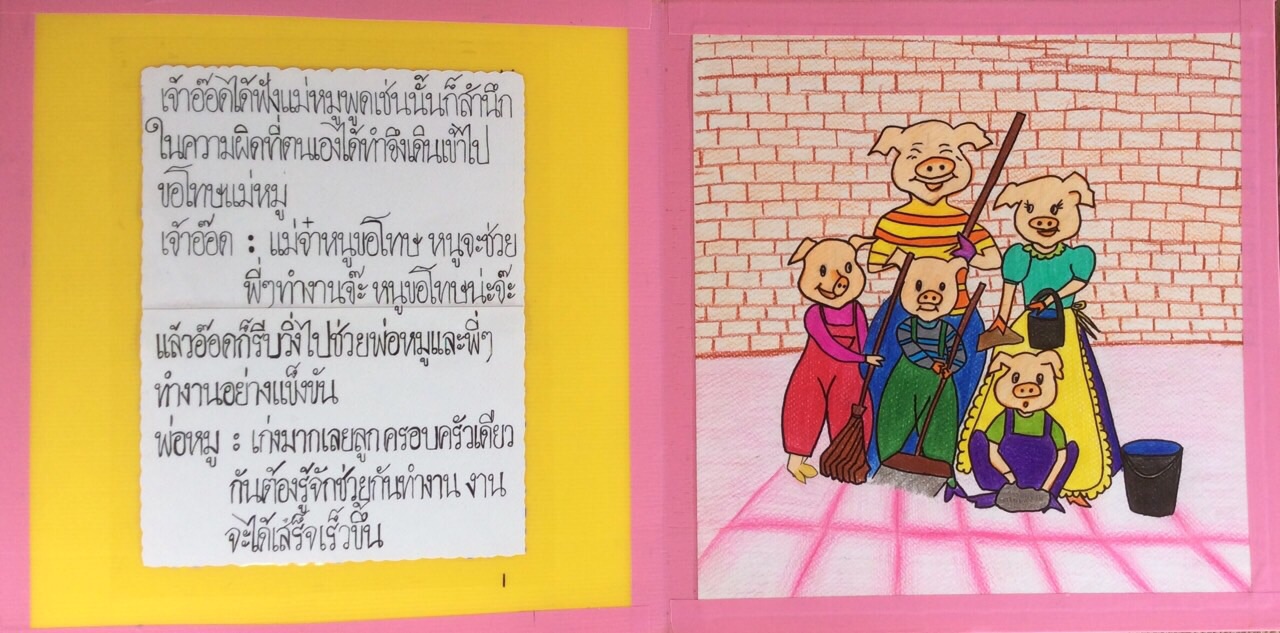 เจ้าอ๊อดได้ฟังแม่หมูพูดเช่นนั้นก็สำนึก
ในความผิดที่ตนเองได้ทำจึงเดินเข้าไป
ขอโทษแม่หมู
เจ้าอ๊อด : แม่จ๋าหนูขอโทษ หนูจะช่วย
พี่ๆทำงานจ๊ะ หนูขอโทษน่ะจ๊ะ
แล้วอ๊อดก็รีบวิ่งไปช่วยพ่อหมูและพี่ๆ
ทำงานอย่างแข็งขัน
พ่อหมู : เก่งมากเลยลูก ครอบครัวเดียว
กันต้องรู้จักช่วยกันทำงาน งาน
จะได้เสร็จเร็วขึ้น